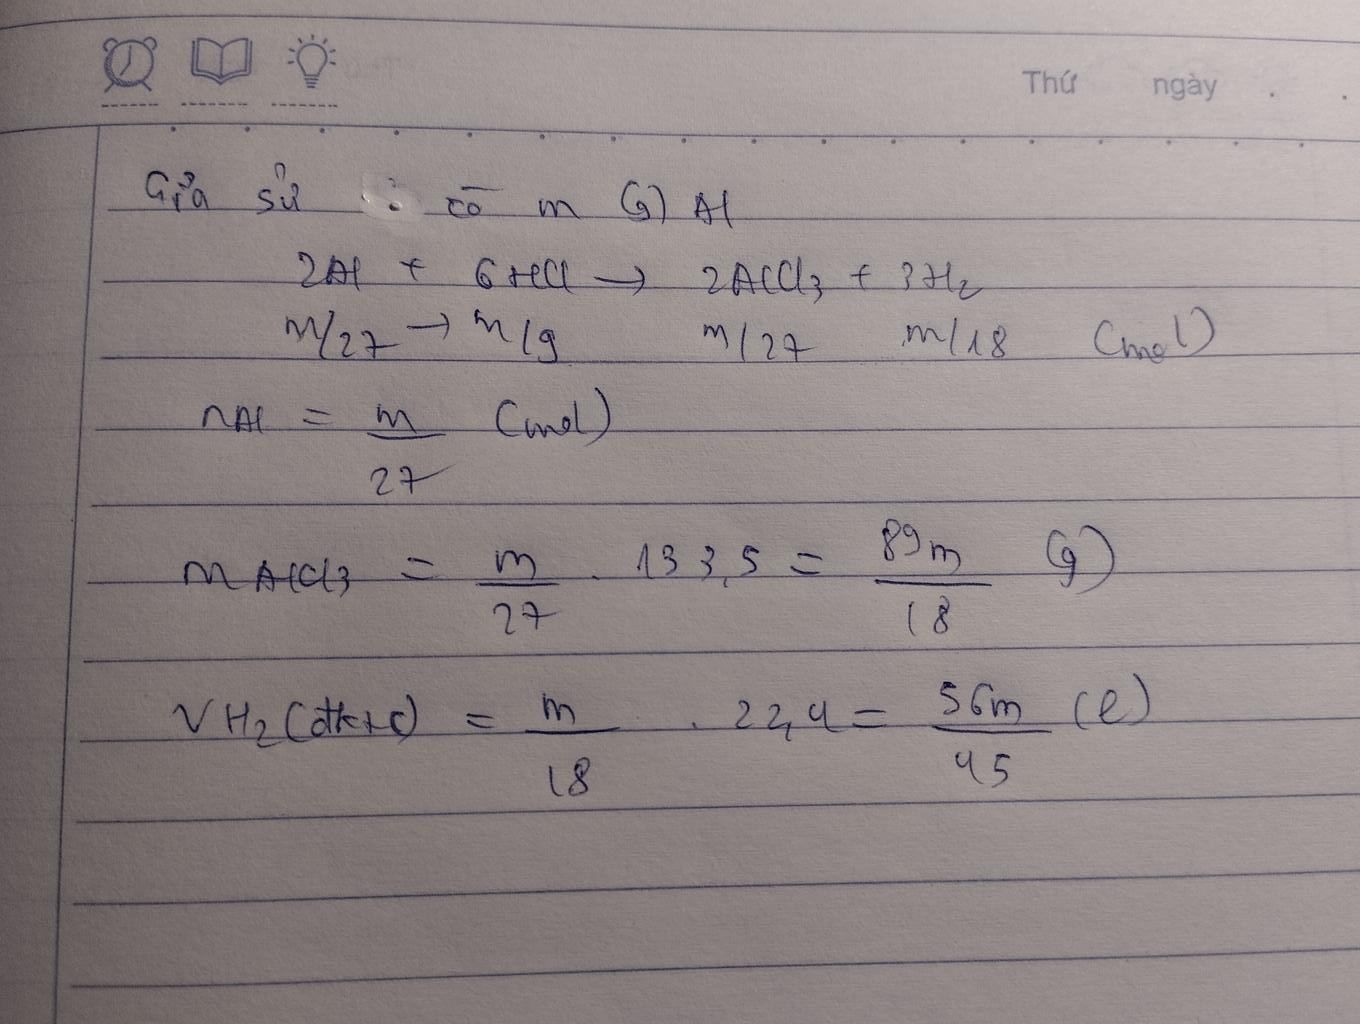 Thứ ngày . .
Giả sử : có m (g) Al
2Al + 6HCl → 2AlCl3 + 3H2
m/27 → m/9 m/27 m/18 (mol)
nAl = m/27 (mol)
mAlCl3 = m/27 . 133,5 = 89m/18 (g)
VH2 (đktc) = m/18 . 22,4 = 56m/45 (l)